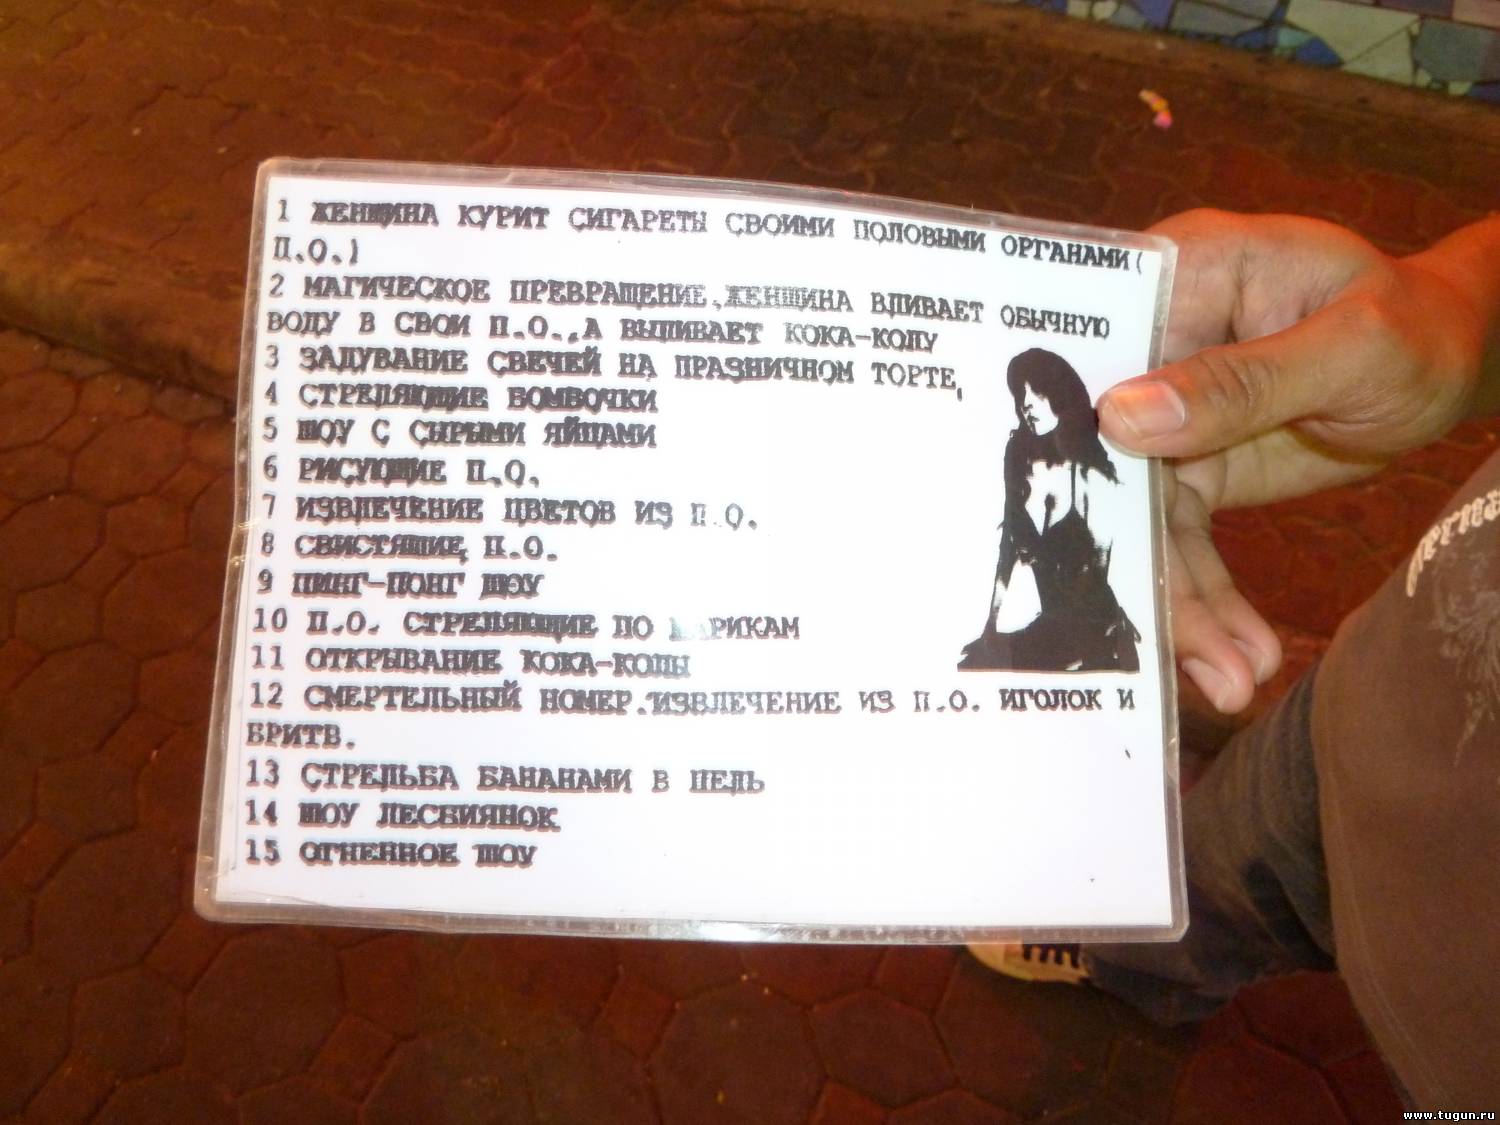 1 ЖЕНЩИНА КУРИТ СИГАРЕТЫ СВОИМИ ПОЛОВЫМИ ОРГАНАМИ(
П.О.)
2 МАГИЧЕСКОЕ ПРЕВРАЩЕНИЕ,ЖЕНЩИНА ВЛИВАЕТ ОБЫЧНУЮ
ВОДУ В СВОИ П.О.,А ВЫЛИВАЕТ КОКА-КОЛУ
3 ЗАДУВАНИЕ СВЕЧЕЙ НА ПРАЗНИЧНОМ ТОРТЕ,
4 СТРЕЛЯЮЩИЕ БОМБОЧКИ
5 ШОУ С СЫРЫМИ ЯЙЦАМИ
6 РИСУЮЩИЕ П.О.
7 ИЗВЛЕЧЕНИЕ ЦВЕТОВ ИЗ П.О.
8 СВИСТЯЩИЕ П.О.
9 ПИНГ-ПОНГ ШОУ
10 П.О. СТРЕЛЯЮЩИЕ ПО ШАРИКАМ
11 ОТКРЫВАНИЕ КОКА-КОЛЫ
12 СМЕРТЕЛЬНЫЙ НОМЕР.ИЗВЛЕЧЕНИЕ ИЗ П.О. ИГОЛОК И
БРИТВ.
13 СТРЕЛЬБА БАНАНАМИ В ЦЕЛЬ
14 ШОУ ЛЕСБИЯНОК
15 ОГНЕННОЕ ШОУ
www.tugun.ru